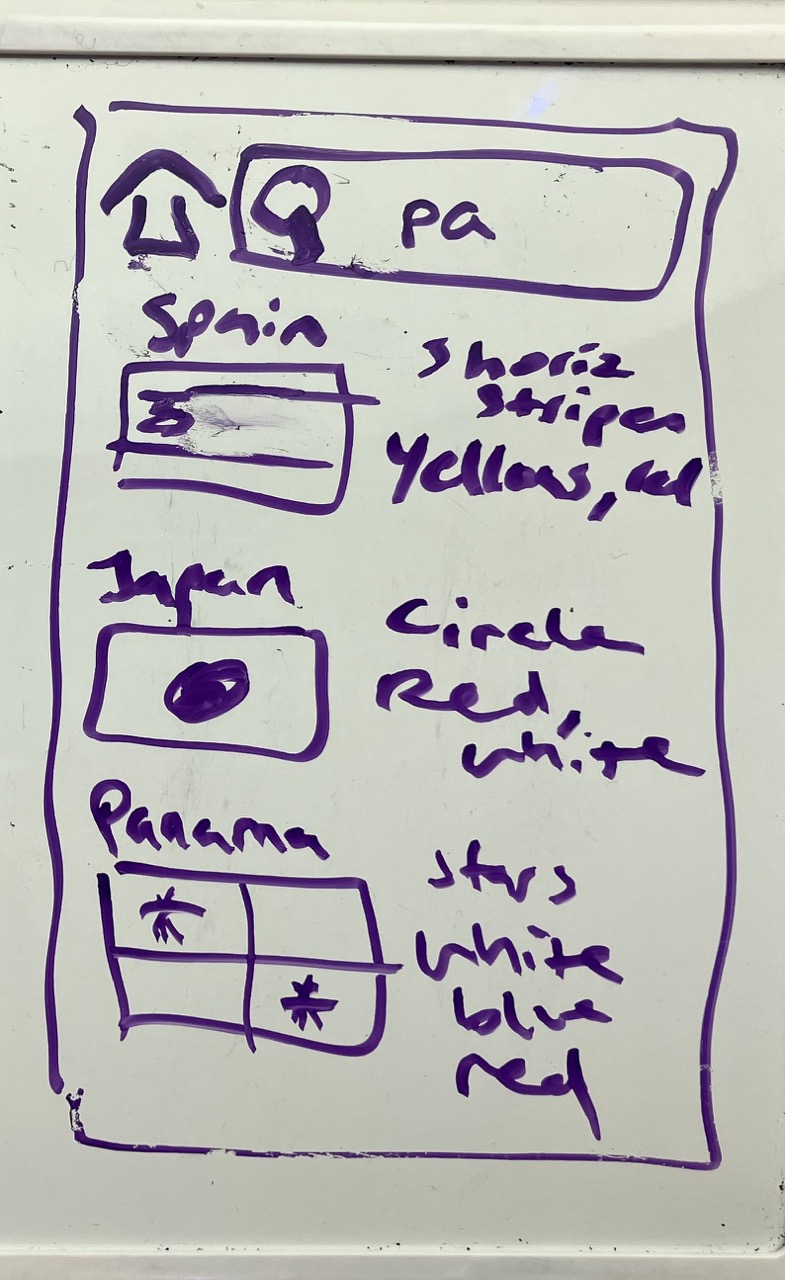 pa
Spain
3 horiz
stripes
Yellow, red
Japan
Circle
Red,
white
Panama
stars
white
blue
red